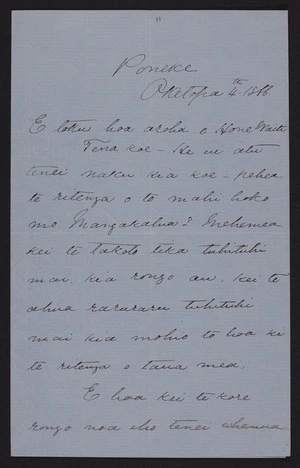 11
Poneke
Oketopa 4th 1866
E toku hoa aroha e Hone Waiti
Tena koe - He ui atu
tenei naku kia koe - pehea
te ritenga o to mahi hoko
mo Mangakahia? Mehemea
kei te takoto tika tuhituhi
mai, kia rongo au, kei te
ahua raruraru tuhituhi
mai kia mohio to hoa ki
te ritenga o taua mea.
E hoa kei te kore
rongo noa iho tenei whenua